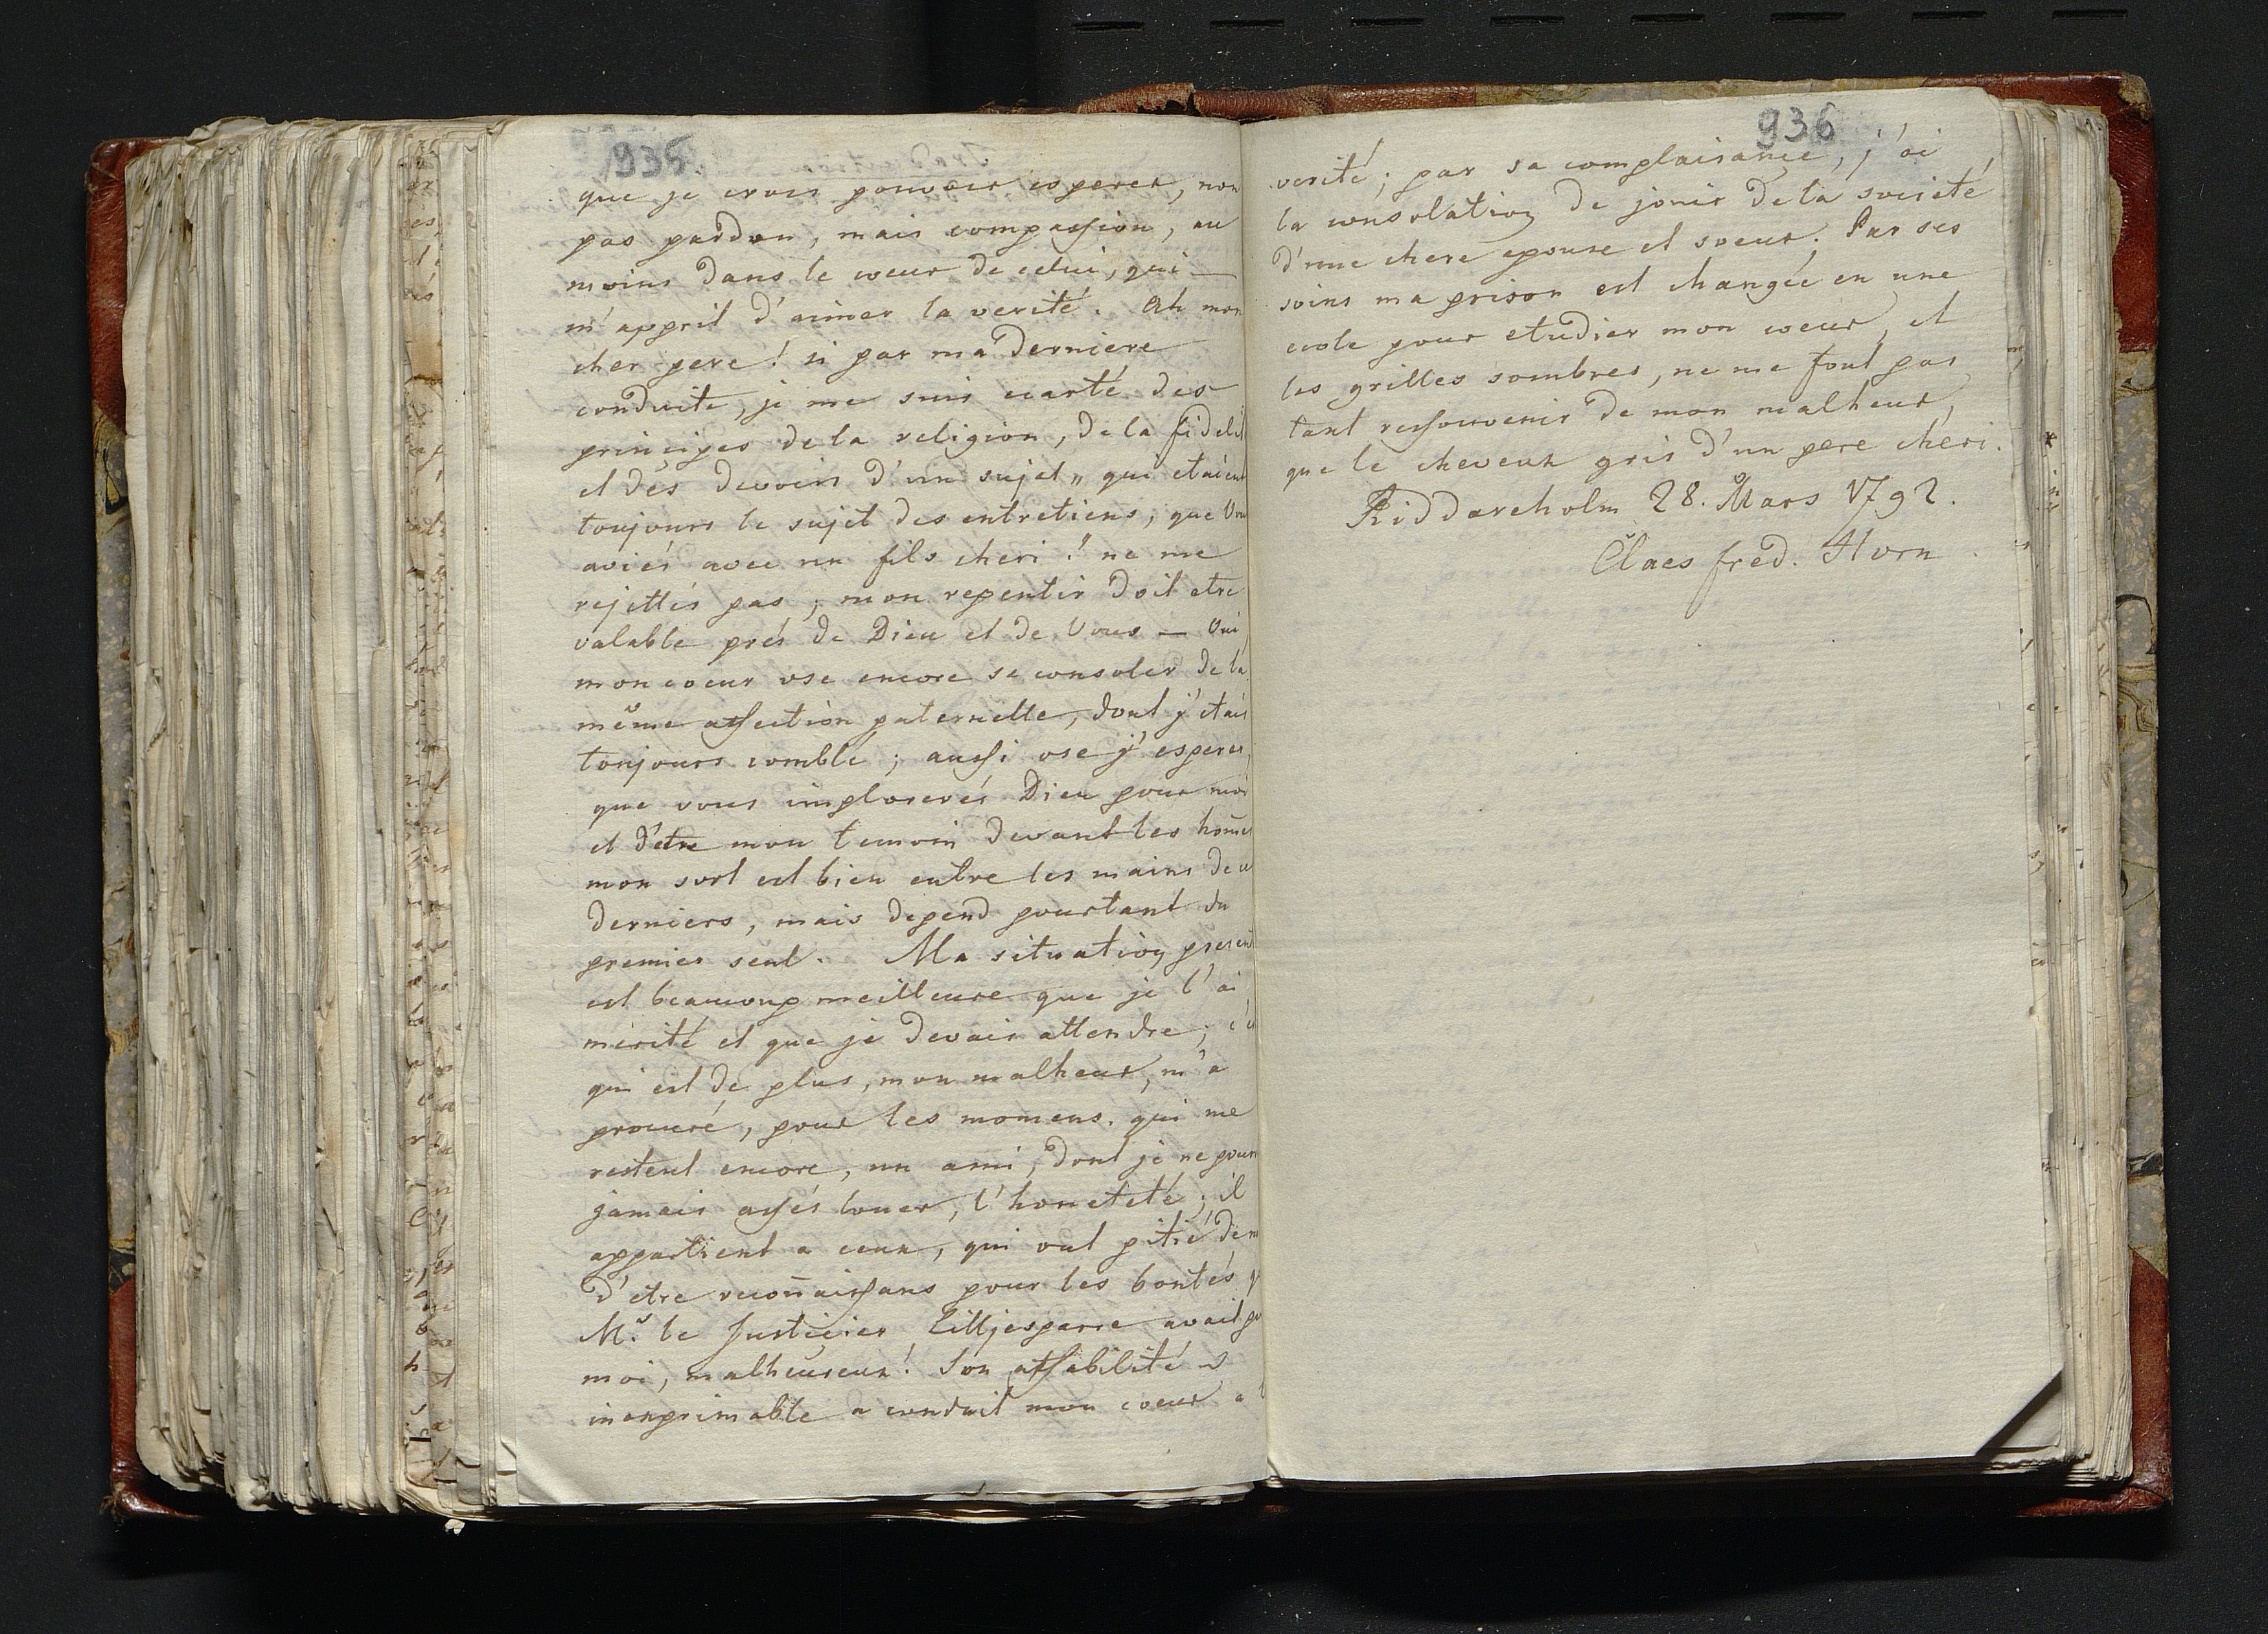 935.
que je crois pouvoir esperer, non
pas pardon, mais compassion, au
moins dans le coeur de celui, qui —
m'apprit d'aimer la verité. Ah mon
cher pere! si par ma derniere
conduite, je me suis ecarté des
principes de la religion, de la fidelit
et des devoirs d'un sujet „ qui etaient
toujours le sujet des entretiens, que Vous
aviés avec un fils cheri! ne me
rejettés pas; mon repentir doit etre
valable prés de Dieu et de Vous — Oui
mon coeur ose encore se consoler de la
même affection paternelle, dont j'etais
toujours comblé; aussi ose j'esperer,
que vous implorerés Dieu pour moi
et d'etre mon temoin devant les hom̄es
mon sort est bien entre les mains de ce
derniers, mais depend pourtant du
premier seul. Ma situation present
est beaucoup meilleure que je l'ai
mérité et que je devais attendre; c'e
qui est de plus, mon malheur, m'a
procuré, pour les momens. qui me
restent encore, un ami, dont je ne pour
jamais assés louer, l'honeteté; il
appartient a ceux, qui ont pitié de m
d'etre recon̄aissans pour les bontés q
Mr. le Justicier Lilljesparre avait po
moi, malheureux! Son affabilité
inexprimable a conduit mon coeur a l
936
verité; par sa complaisance, j'ai
la consolation de jouir de la societé
d'une chere epouse et soeur. Par ses
soins ma prison est changée en une
ecole pour etudier mon coeur, et
les grilles sombres, ne me font pas
tant ressouvenir de mon malheur,
que le cheveux gris d'un pere chéri.
Riddareholm 28. Mars 1792.
Claes fred. Horn